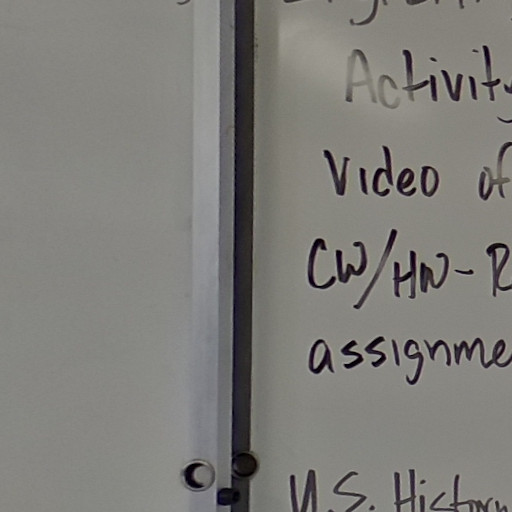 Activity
Video of
CW/HW-R
assignme
U.S. History